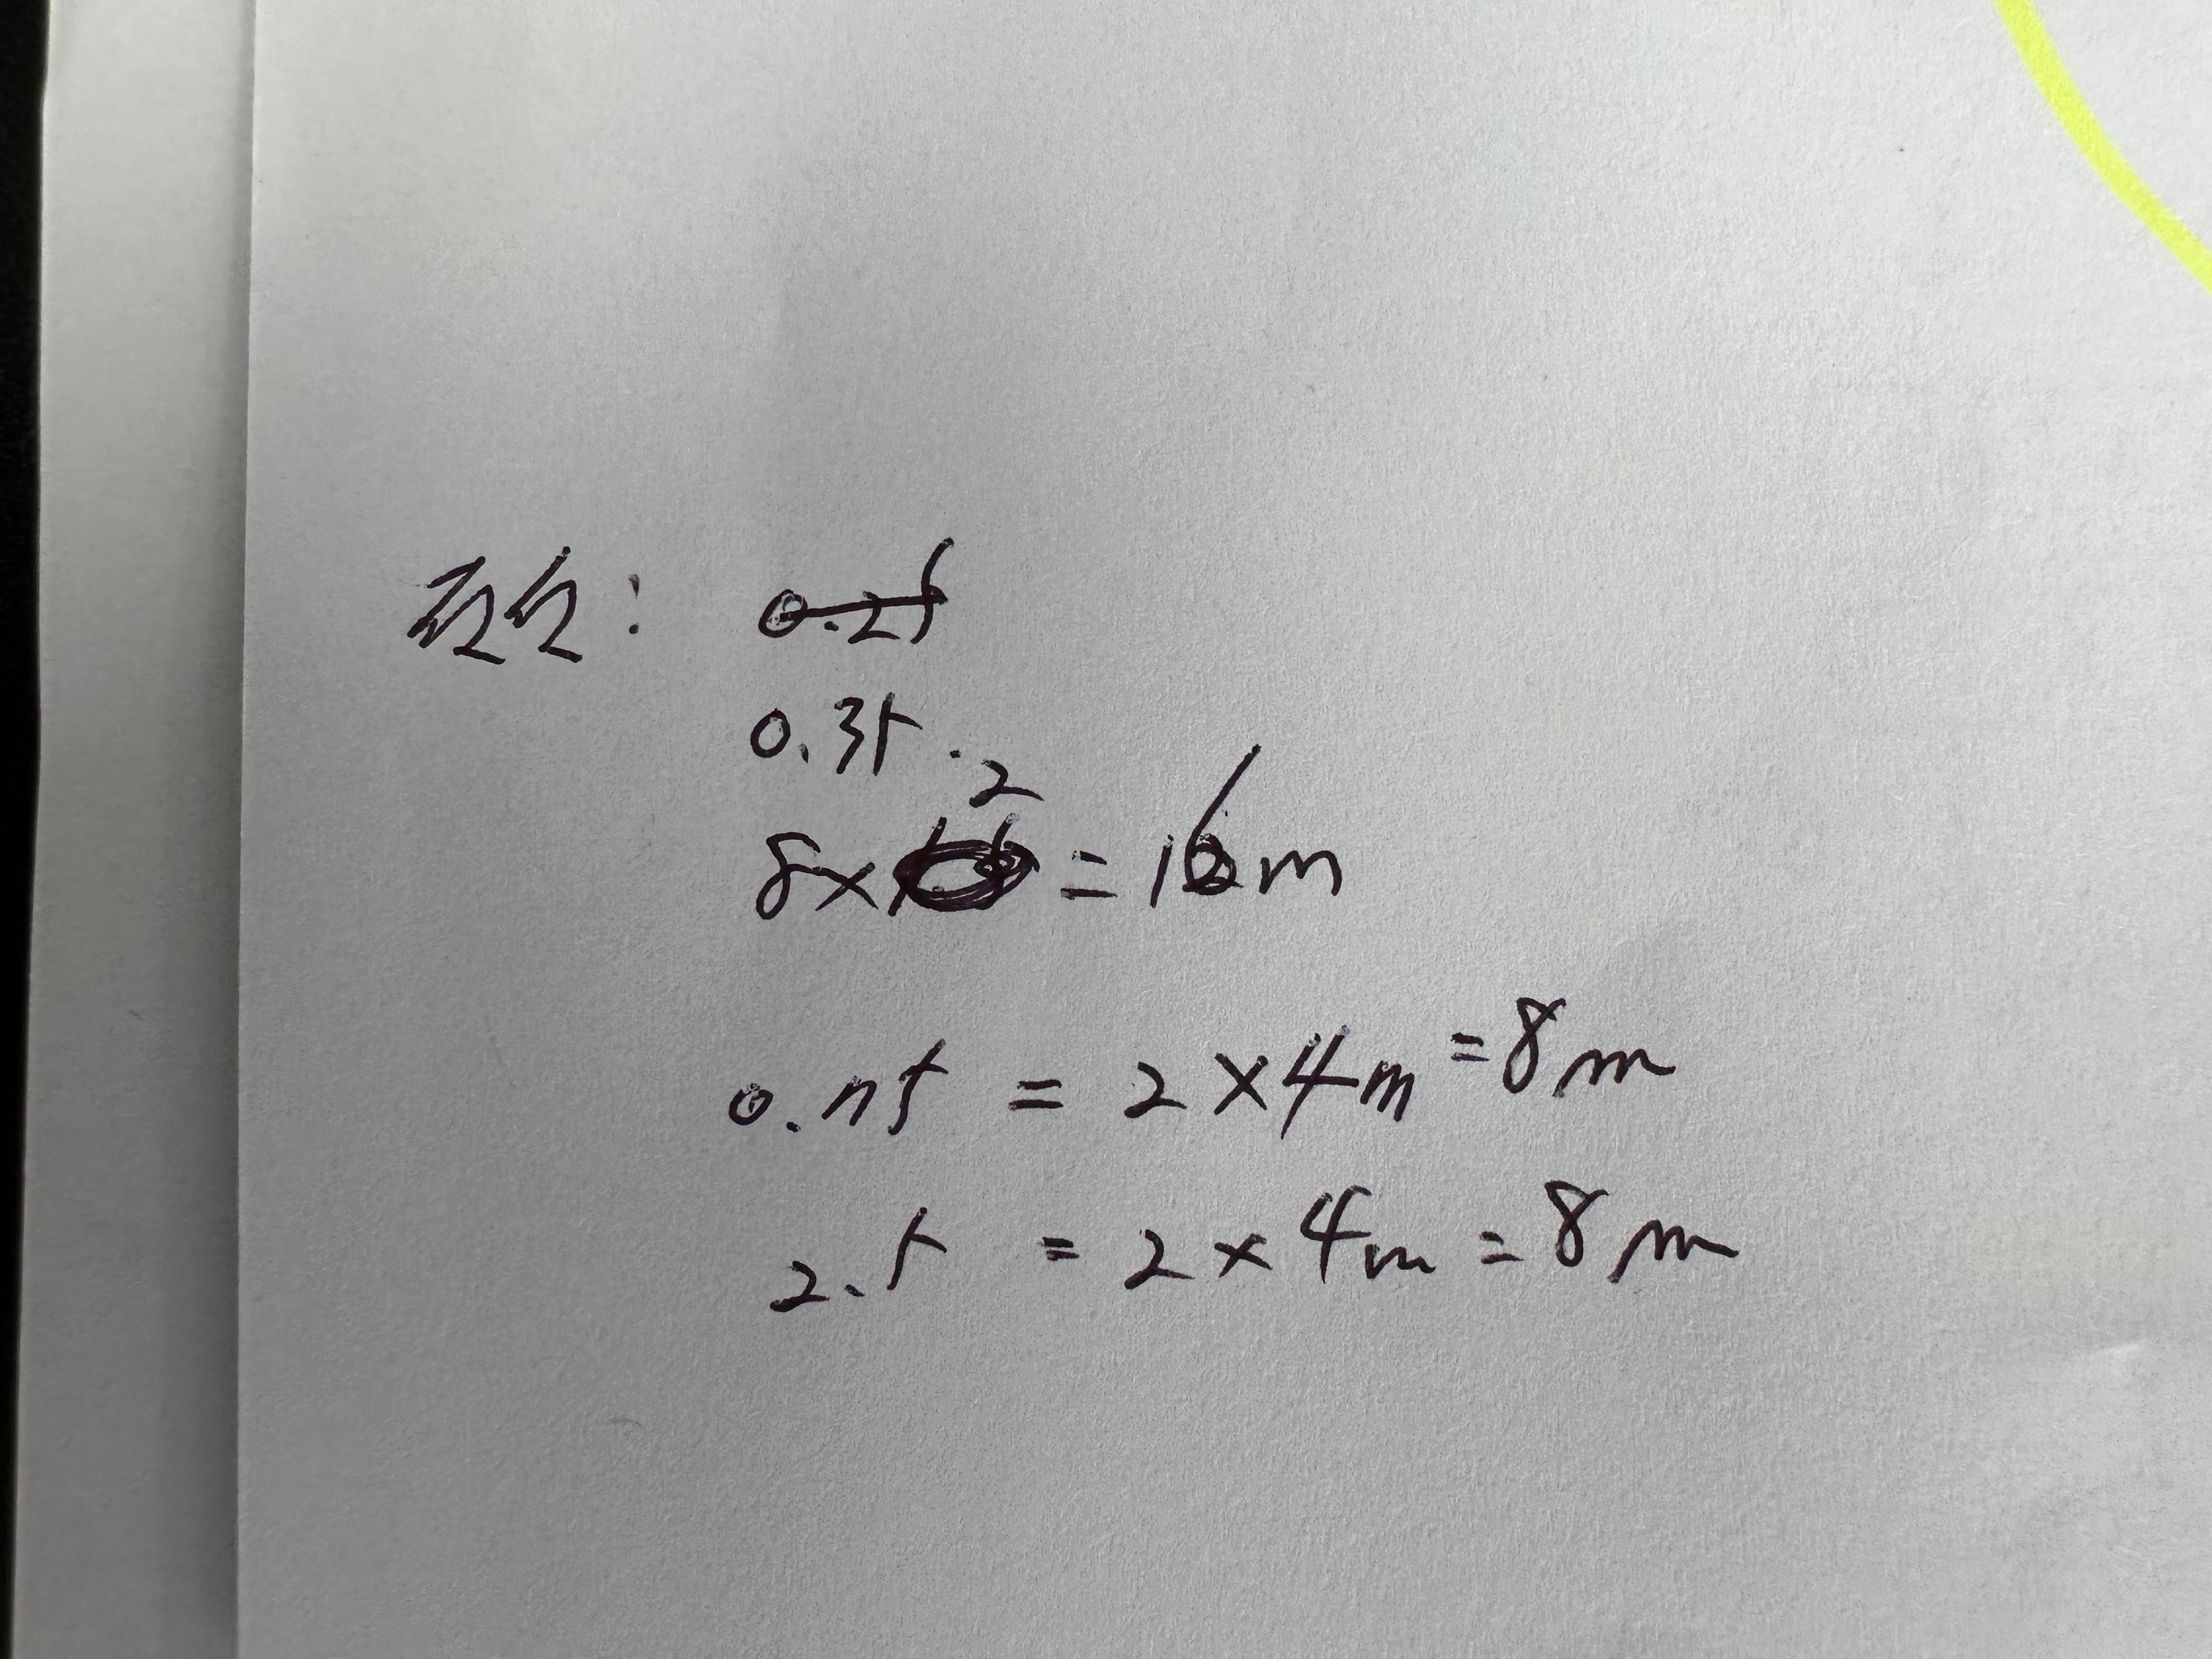 0.25
0.35
8×2=16m
0.75=2×4m=8m
2.5=2×4m=8m